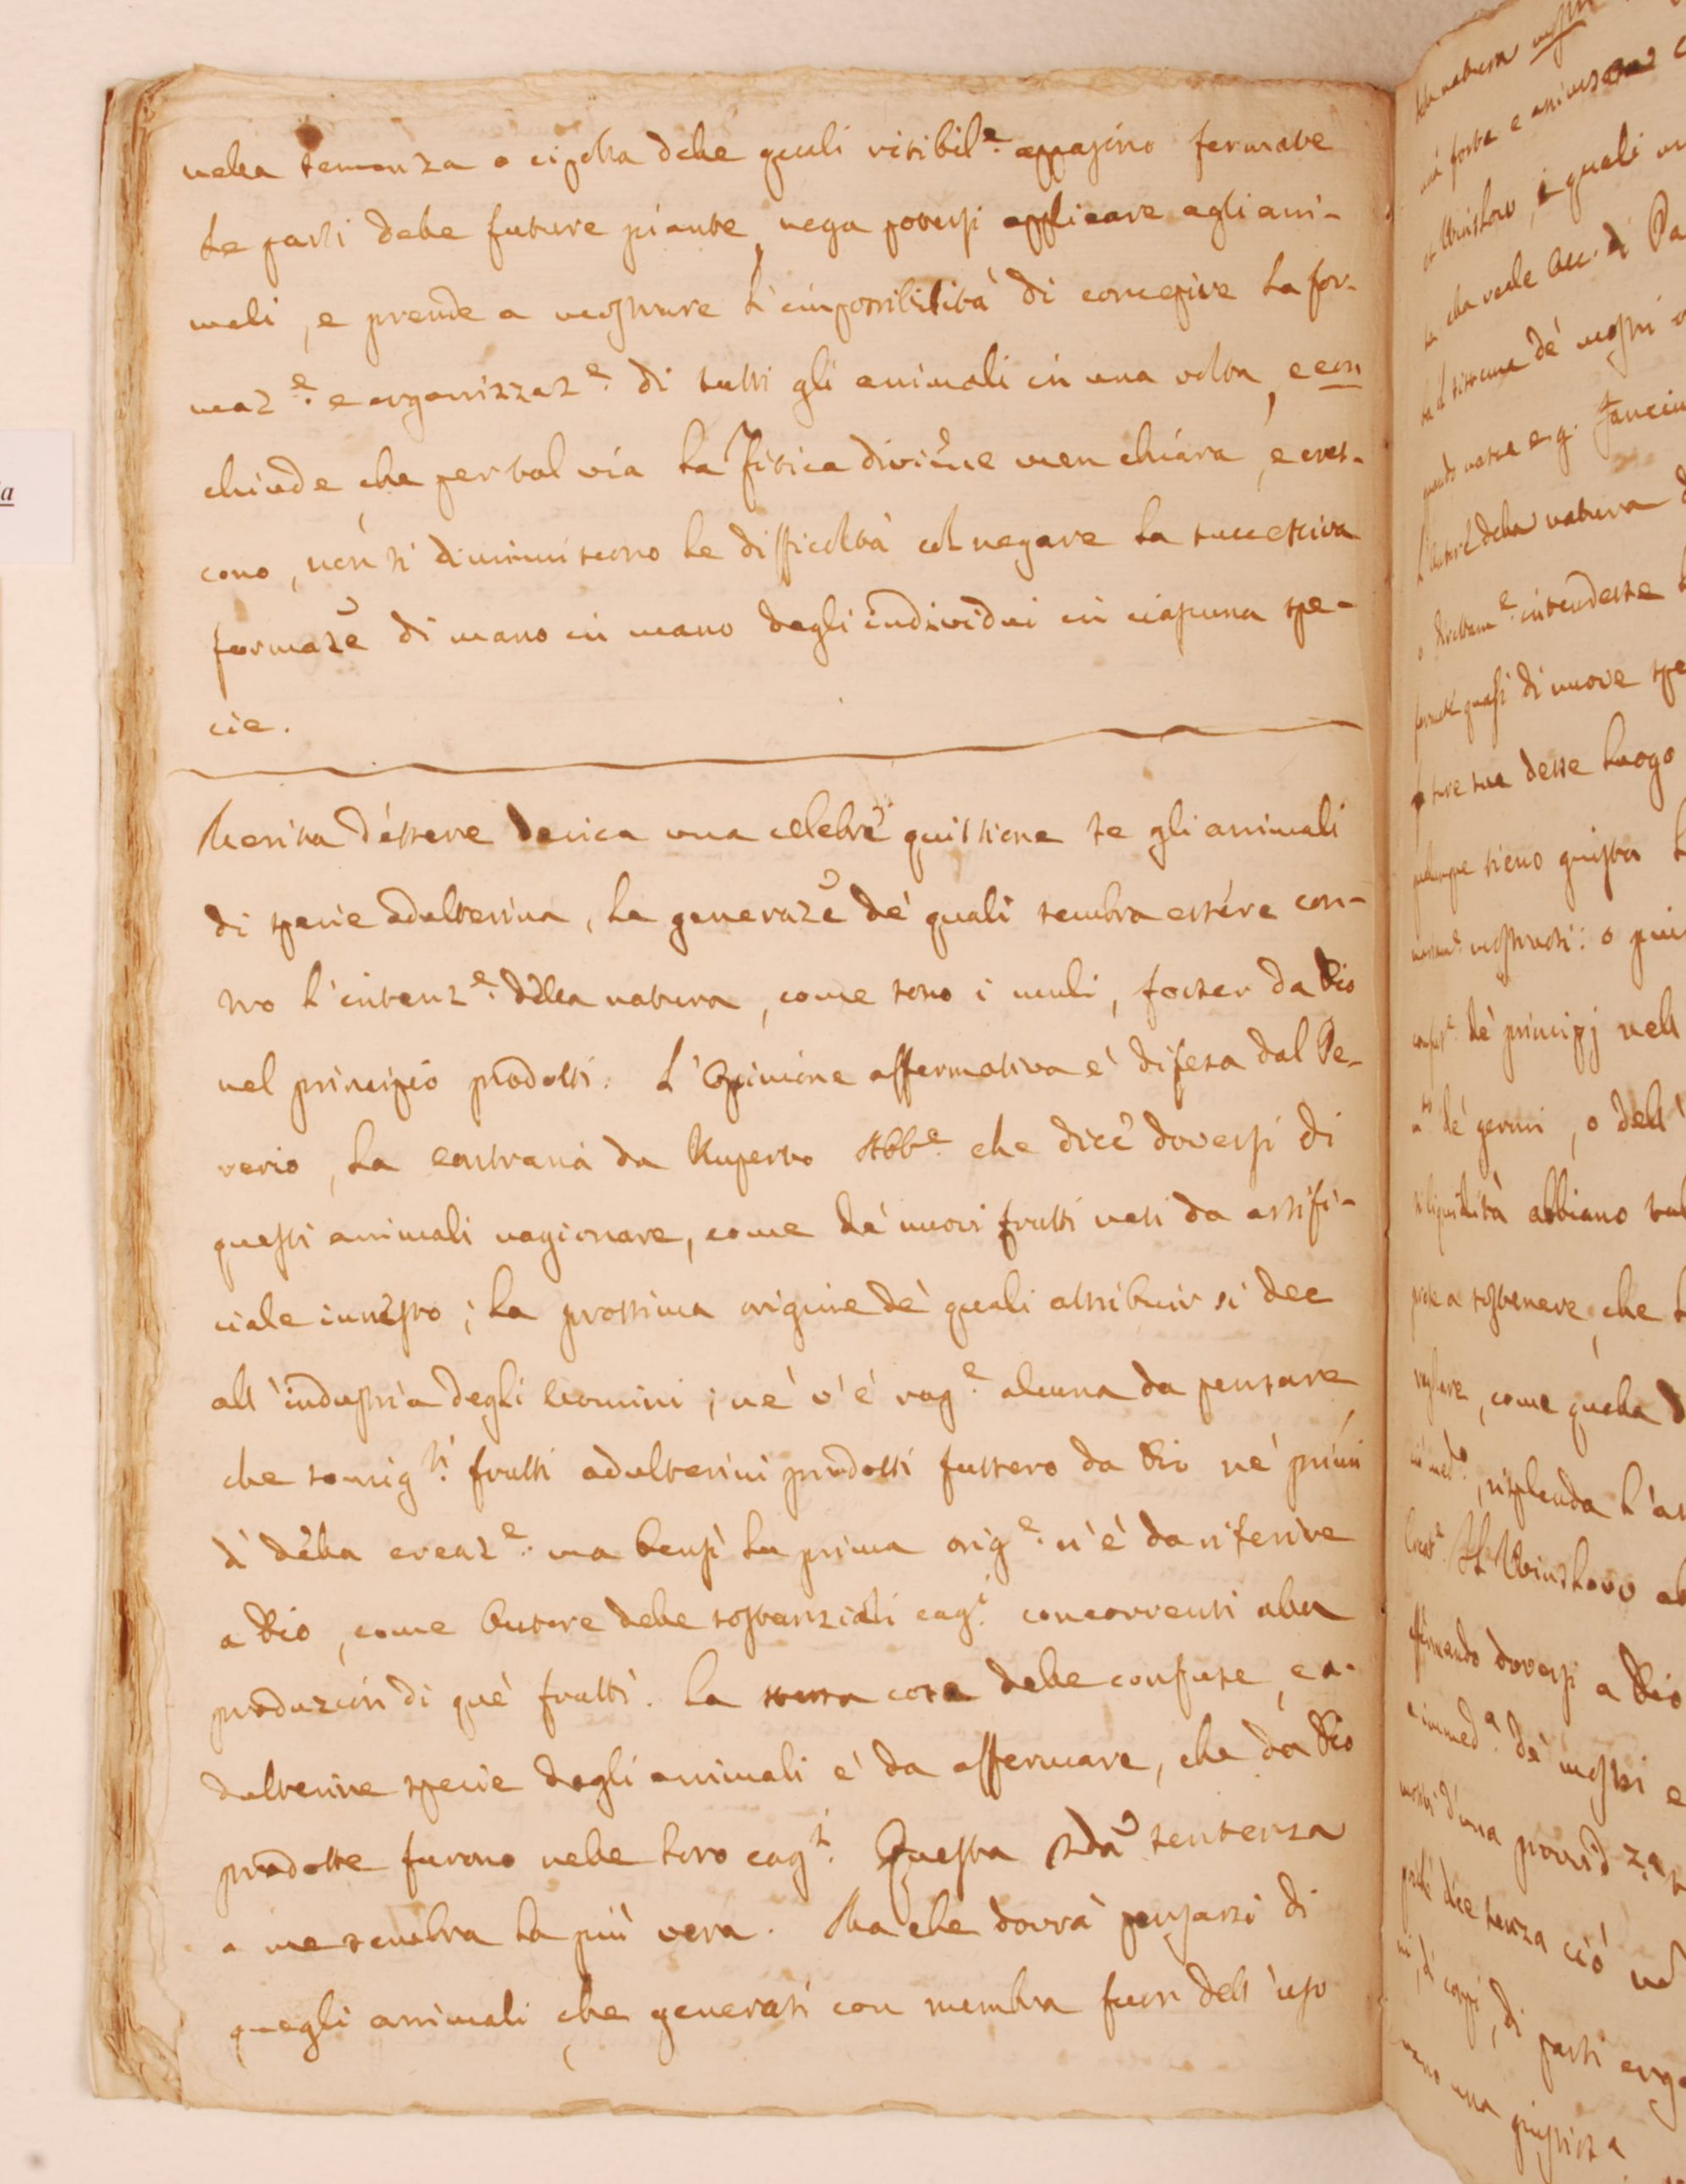 nella semenza o cipolla delle quali visibil.e appajono formate
le parti delle future piante, nega potersi applicare agli ani-
mali, e prende a mostrare l'impossibilità di concepire la for-
maz.e e organizzaz.e di tutti gli animali in una volta, e con
chiude, che per tal via la Fisica diviene men chiara, e cres-
cono, non si diminuiscono le difficoltà col negare la successiva
formaz.e di mano in mano degli individui in ciascuna spe-
cie.
Merita d'essere una celebre quistione se gli animali
di specie adulterina, la generaz.e de' quali sembra essere con-
tro l'intenz.e della natura, come sono i muli, fosser da Dio
nel principio prodotti. L'Opinione affermativa è difesa dal Pe-
rerio, la contraria da Ruperto Abb.e che dice doversi di
questi animali ragionare, come de' nuovi frutti nati da artifi-
ciale innesto; la prossima origine de' quali attribuir si dee
all'industria degli uomini; nè v'è rag.e alcuna da pensare,
che somig.li frutti adulterini prodotti fussero da Dio ne' primi
dì della creaz.e ma bensì la prima orig.e n'è da riferire
a Dio, come Autore delle sostanziali cag.i concorrenti alla
produzion di què frutti. La stessa cosa delle confuse, e a-
dulterine specie degli animali è da affermare, che da Dio
prodotte furono nelle loro cag.i Questa sda sentenza
a me sembra la più vera. Ma che dovrà pensarsi di
quegli animali che generati con membra fuor dell'uso
della natura
più forte e
Winslow, i quali
Acc. di Pa
il sistema de' mostri
nasce e.g. fanciu
L'Autore della natura
o direttam.e intendesse
quasi di nuove spe
desse luogo
sieno guista
mostruosi: o piu
de' principj nell
de' germi, o dell'
abbiano tal
a sostenere, che
come quella
risplenda l'ar
Il Winslow
affermando doversi a Dio
de' mostri e
d'una provid.za
dice senza ciò
di parti
una giustizia